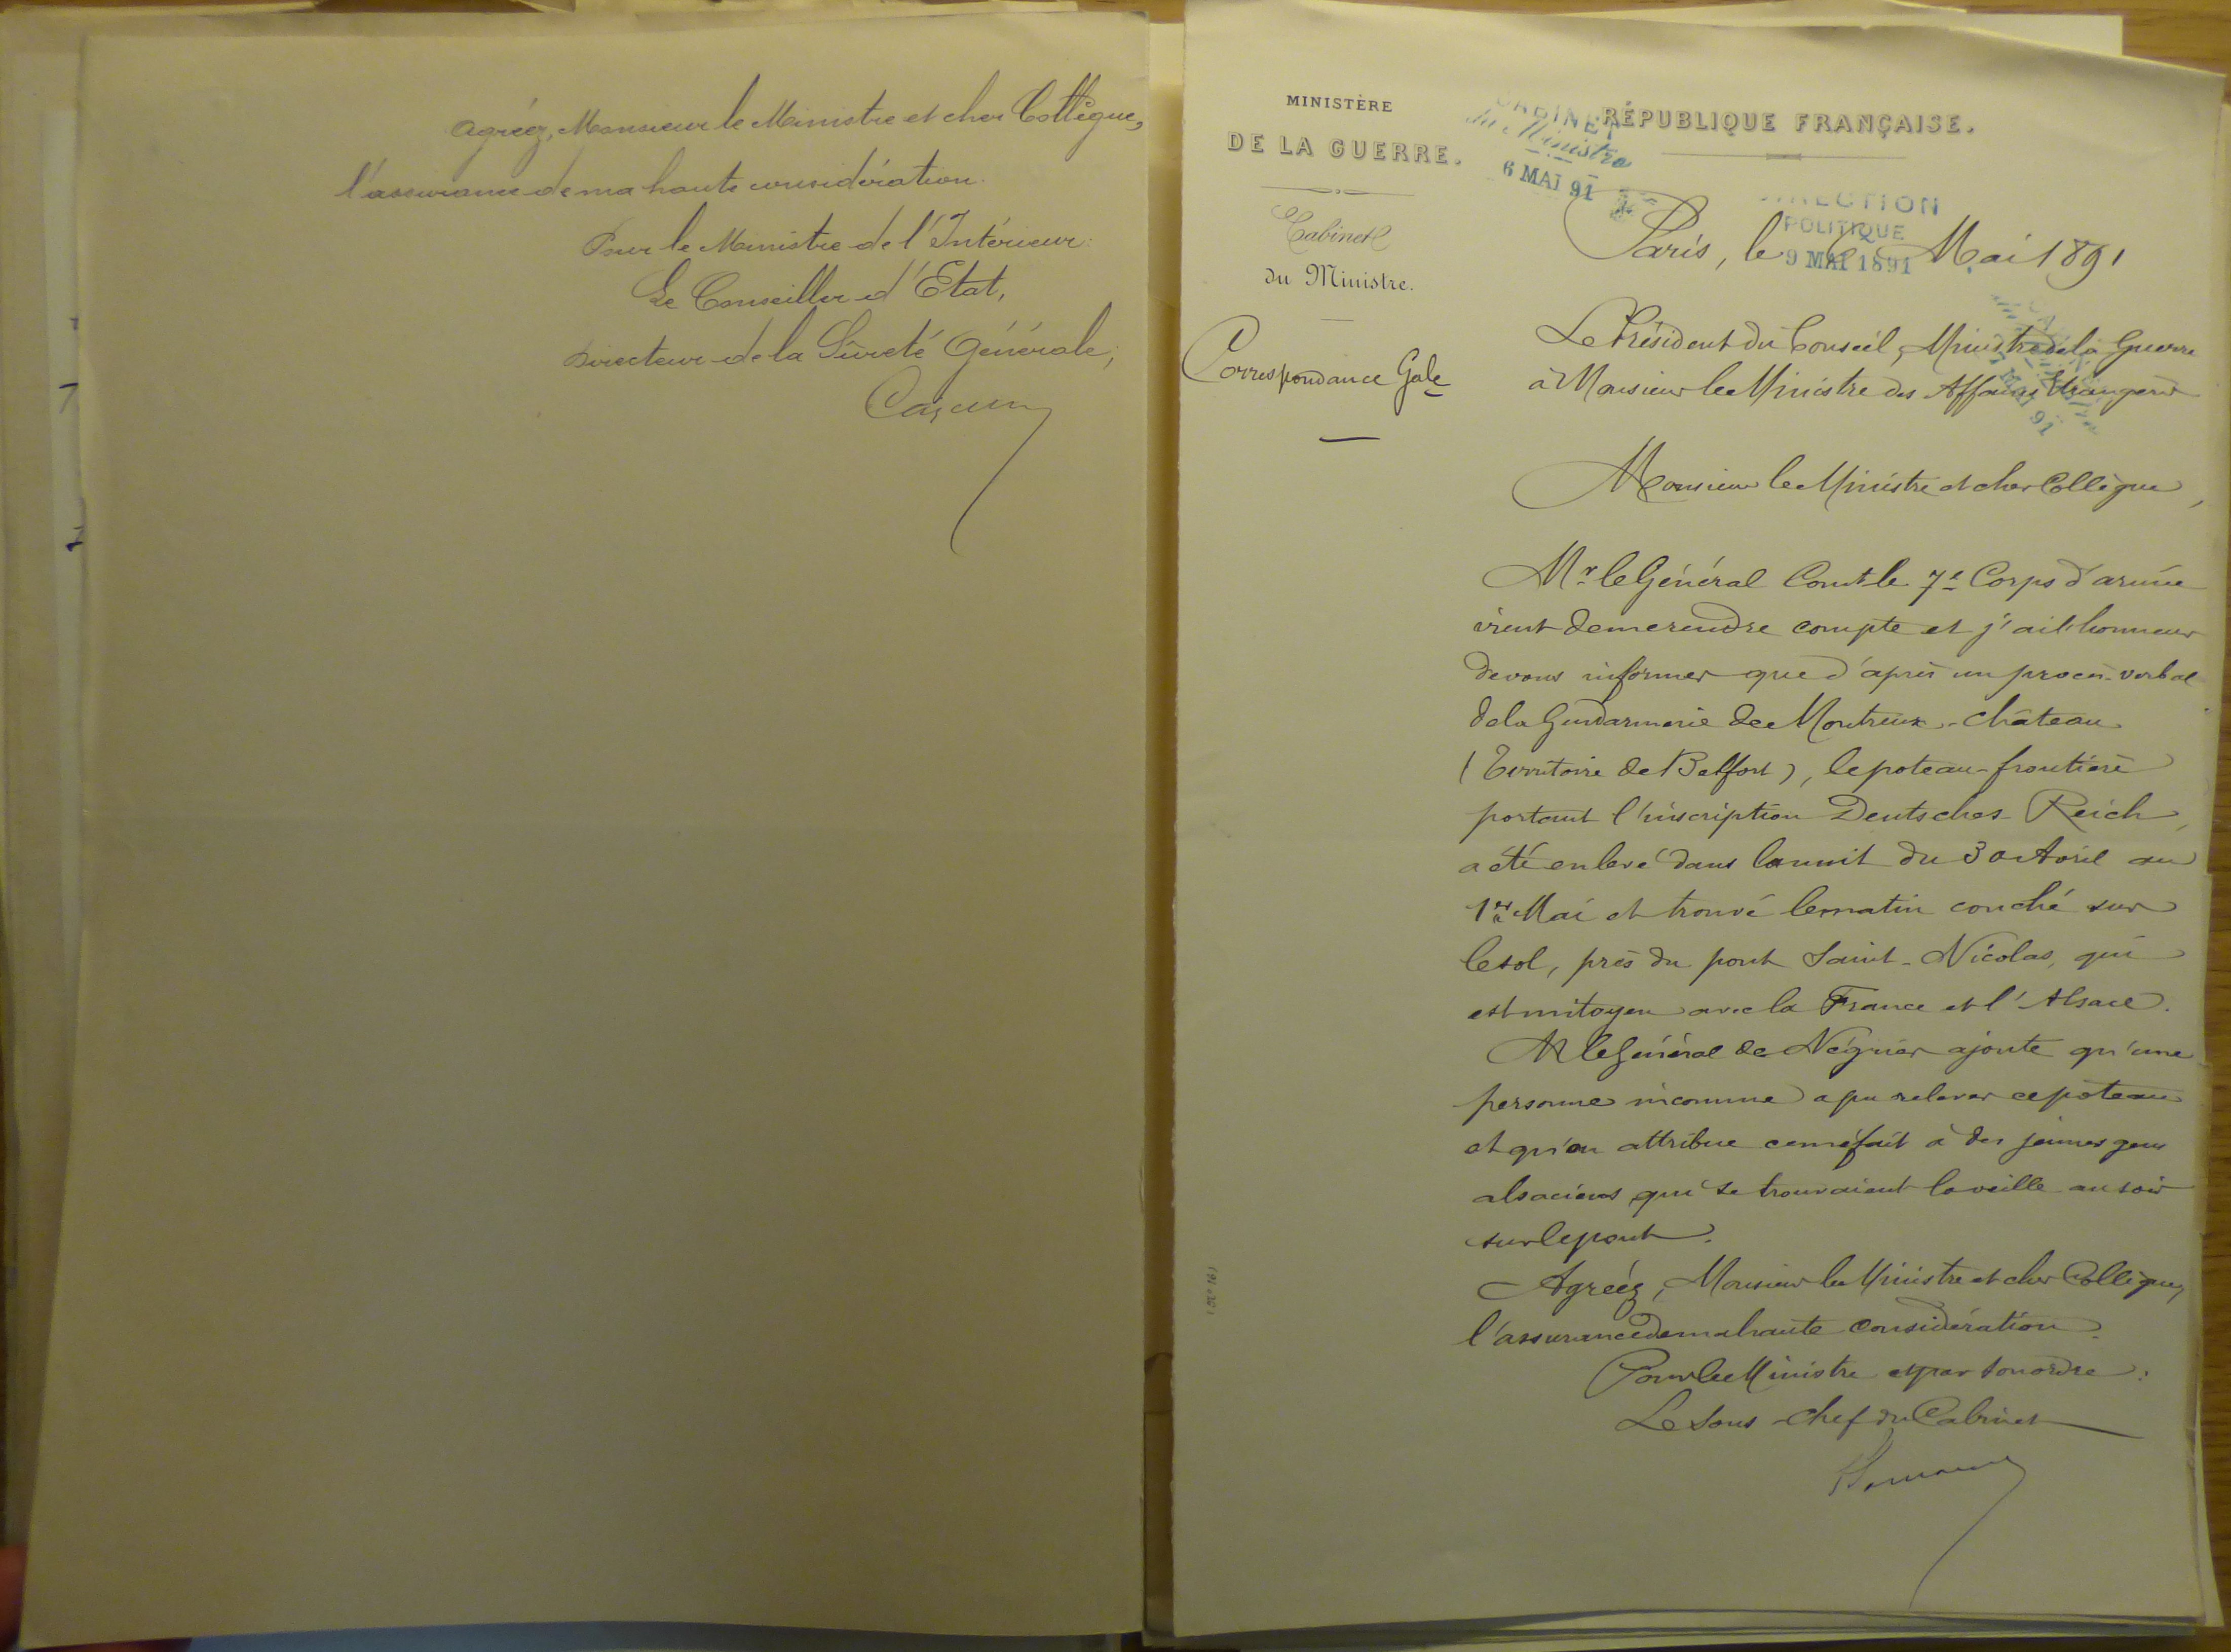 Agréez, Monsieur le Ministre et cher Collègue,
l'assurance de ma haute considération.
Pour le Ministre de l'Intérieur:
Le Conseiller d'Etat,
Directeur de la Sûreté Générale,
MINISTÈRE
DE LA GUERRE.
Cabinet
du Ministre.
Correspondance Gale
CABINET
du Ministre
6 MAI 91
RÉPUBLIQUE FRANÇAISE.
DIRECTION
POLITIQUE
9 MAI 1891
Paris, le 6 Mai 1891
Le Président du Conseil, Ministre de la Guerre
à Monsieur le Ministre des Affaires Etrangères
Monsieur le Ministre et cher Collègue,
Mr le Général Comt le 7e Corps d'armée
vient de me rendre compte et j'ai l'honneur
de vous informer que d'après un procès-verbal
de la Gendarmerie de Montreux-château
(Territoire de Belfort), le poteau-frontière
portant l'inscription Deutsches Reich,
a été enlevé dans la nuit du 30 Avril au
1er Mai et trouvé le matin couché sur
le sol, près du pont Saint-Nicolas, qui
est mitoyen avec la France et l'Alsace.
M le Général de Négrier ajoute qu'une
personne inconnue a pu relever ce poteau
et qu'on attribue ce méfait à des jeunes gens
alsaciens qui se trouvaient la veille au soir
sur le pont.
Agréez, Monsieur le Ministre et cher Collègue,
l'assurance de ma haute considération.
Pour le Ministre et par son ordre:
Le Sous-chef du Cabinet